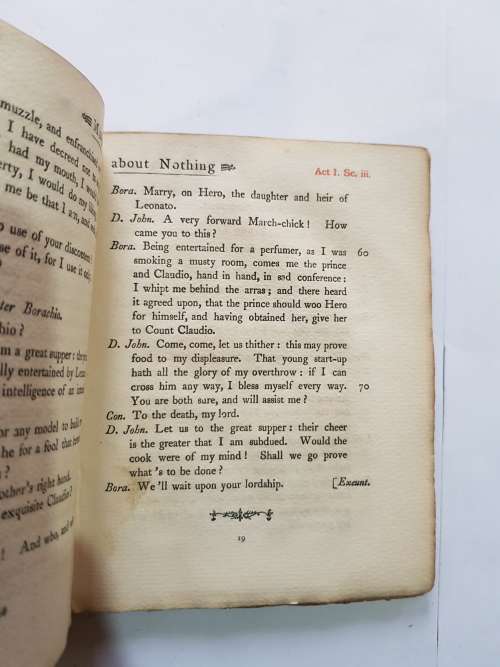 muzzle, and enfranchised
I have decreed not to
had my mouth, I would
erty, I would do my liking
me be that I am, and seek
use of your discontent
se of it, for I use it only
?
ter Borachio.
hio?
m a great supper: the
lly entertained by Leon
intelligence of an inten
or any model to build
he for a fool that
?
other's right hand.
exquisite Claudio?
! And who, and
about Nothing
Act I. Sc. iii.
Bora. Marry, on Hero, the daughter and heir of
Leonato.
D. John. A very forward March-chick! How
came you to this?
Bora. Being entertained for a perfumer, as I was 60
smoking a musty room, comes me the prince
and Claudio, hand in hand, in sad conference:
I whipt me behind the arras; and there heard
it agreed upon, that the prince should woo Hero
for himself, and having obtained her, give her
to Count Claudio.
D. John. Come, come, let us thither: this may prove
food to my displeasure. That young start-up
hath all the glory of my overthrow: if I can
cross him any way, I bless myself every way. 70
You are both sure, and will assist me?
Con. To the death, my lord.
D. John. Let us to the great supper: their cheer
is the greater that I am subdued. Would the
cook were of my mind! Shall we go prove
what's to be done?
Bora. We'll wait upon your lordship. [Exeunt.
19